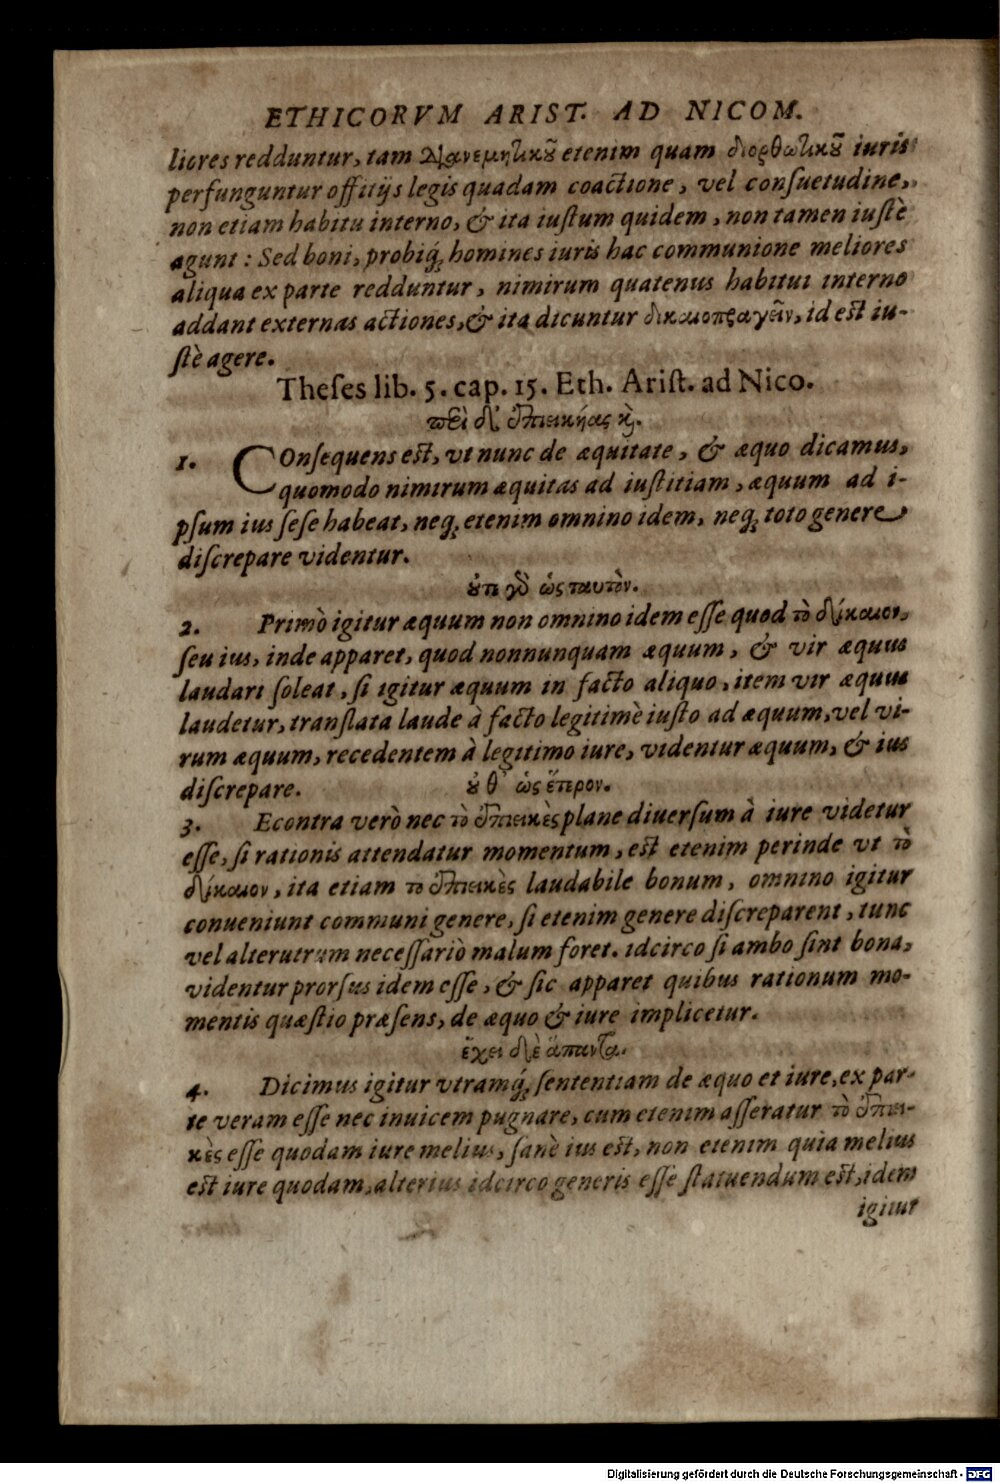 ETHICORVM ARIST. AD NICOM.
liores redduntur, tam διανεμητικοῦ etenim quam διορθωτικοῦ iuris
perfunguntur offitijs legis quadam coactione, vel consuetudine,
non etiam habitu interno, & ita iustum quidem, non tamen iustè
agunt: Sed boni, probiq́; homines iuris hac communione meliores
aliqua ex parte redduntur, nimirum quatenus habitui interno
addant externas actiones, & ita dicuntur δικαιοπραγεῖν, id est iu-
stè agere.
Theses lib. 5. cap. 15. Eth. Arist. ad Nico.
περὶ δ' ἐπιεικείας κỳ.
1. COnsequens est, vt nunc de æquitate, & æquo dicamus,
quomodo nimirum æquitas ad iustitiam, æquum ad i-
psum ius sese habeat, neq; etenim omnino idem, neq; toto genere
discrepare videntur.
οὔτε γὸ ὡς ταυτὸν.
2. Primò igitur æquum non omnino idem esse quod τὸ δίκαιον,
seu ius, inde apparet, quod nonnunquam æquum, & vir æquus
laudari soleat, si igitur æquum in facto aliquo, item vir æquus
laudetur, translata laude à facto legitimè iusto ad æquum, vel vi-
rum æquum, recedentem à legitimo iure, videntur æquum, & ius
discrepare. οὐθ' ὡς ἕτερον.
3. Econtra verò nec τὸ ἐπιεικὲς plane diuersum à iure videtur
esse, si rationis attendatur momentum, est etenim perinde vt τὸ
δίκαιον, ita etiam τὸ ἐπιεικὲς laudabile bonum, omnino igitur
conueniunt communi genere, si etenim genere discreparent, tunc
vel alterutrum necessariò malum foret. idcirco si ambo sint bona,
videntur prorsus idem esse, & sic apparet quibus rationum mo-
mentis quæstio præsens, de æquo & iure implicetur.
ἔχει δὲ ἅπαντα.
4. Dicimus igitur vtramq́; sententiam de æquo et iure, ex par-
te veram esse nec inuicem pugnare, cum etenim asseratur τὸ ἐπιει-
κὲς esse quodam iure melius, sanè ius est, non etenim quia melius
est iure quodam, alterius idcirco generis esse statuendum est, idem
igitur
Digitalisierung gefördert durch die Deutsche Forschungsgemeinschaft - DFG